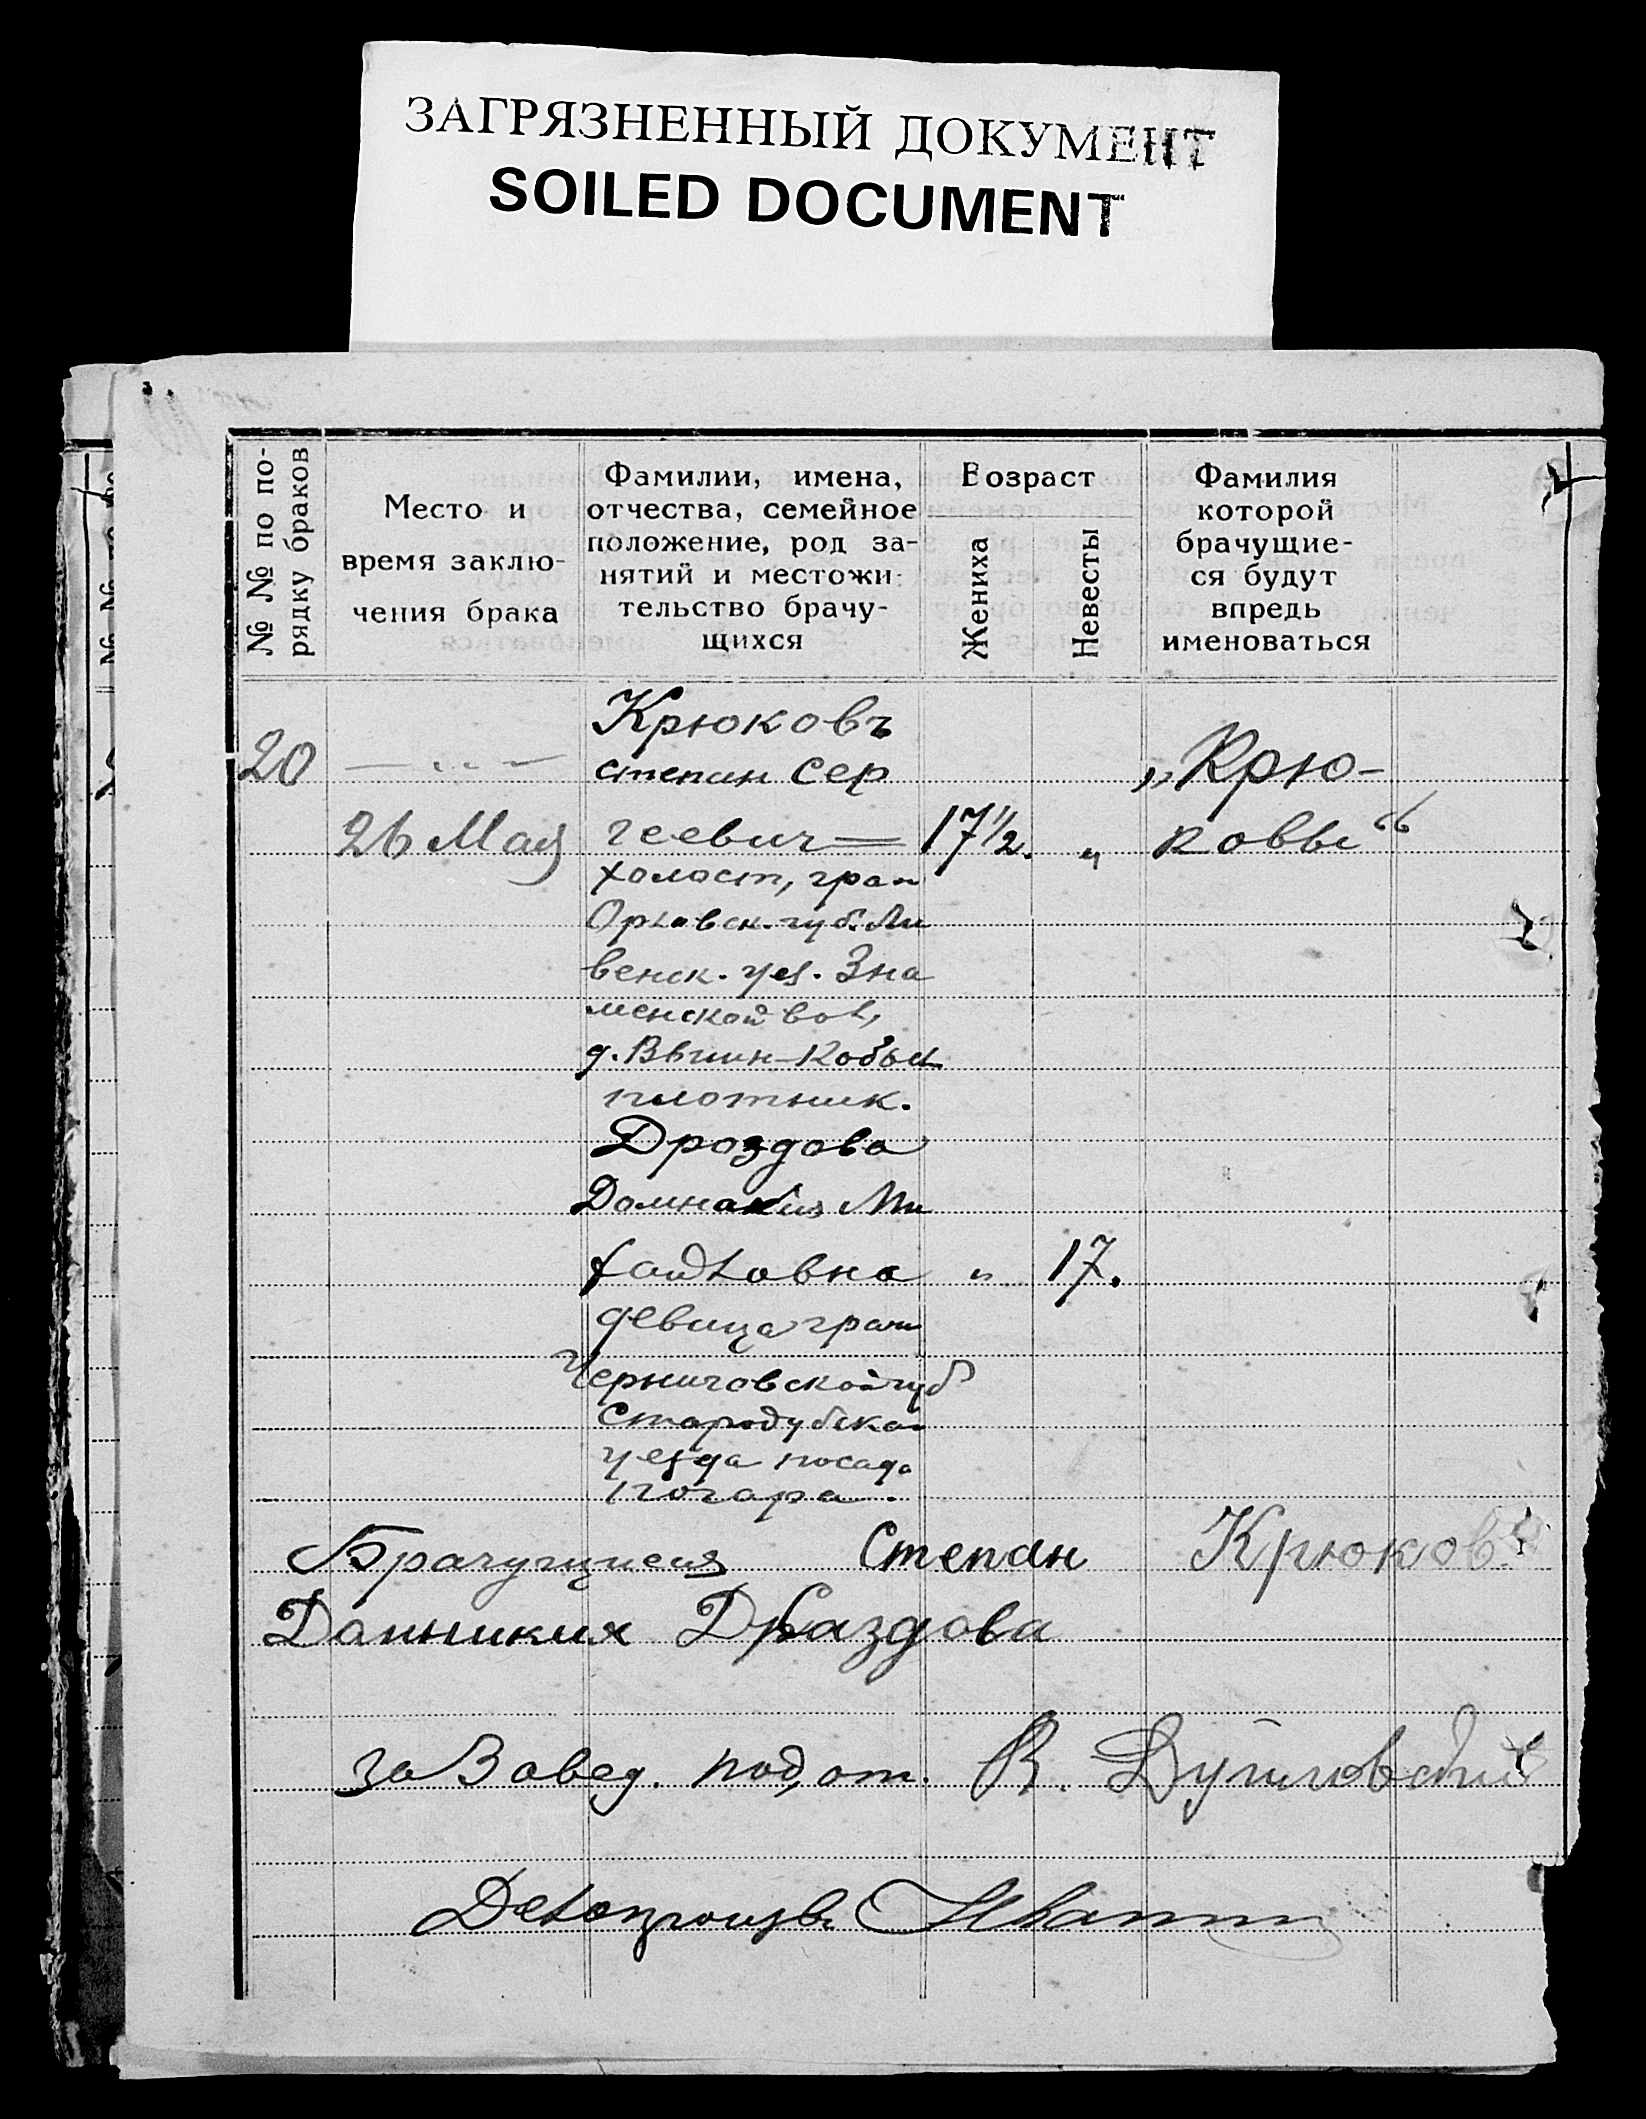 ЗАГРЯЗНЕННЫЙ ДОКУМЕНТ
SOILED DOCUMENT
№ № по по-
рядку браков
Место и
время заклю-
чения брака
Фамилии, имена,
отчества, семейное
положение, род за-
нятий и местожи-
тельство брачу-
щихся
Возраст
Жениха
Невесты
Фамилия
которой
брачущие-
ся будут
впредь
именоваться
20
26 Мая
Крюковъ
степан Сер
геевич
холост, граж
Орловск. губ. Ли
венск. уез. Зна
менской вол,
д.
плотник.
Дроздова
Ми
хайловна
девица граж
Черниговской губ
Стародубского
уезда посада
Погара.
17½. "
" 17.
„Крю-
ковы“
Брачущиеся Степан Крюков
Домникия Драздова
за Завед. под, от. В.
Делопроизв.